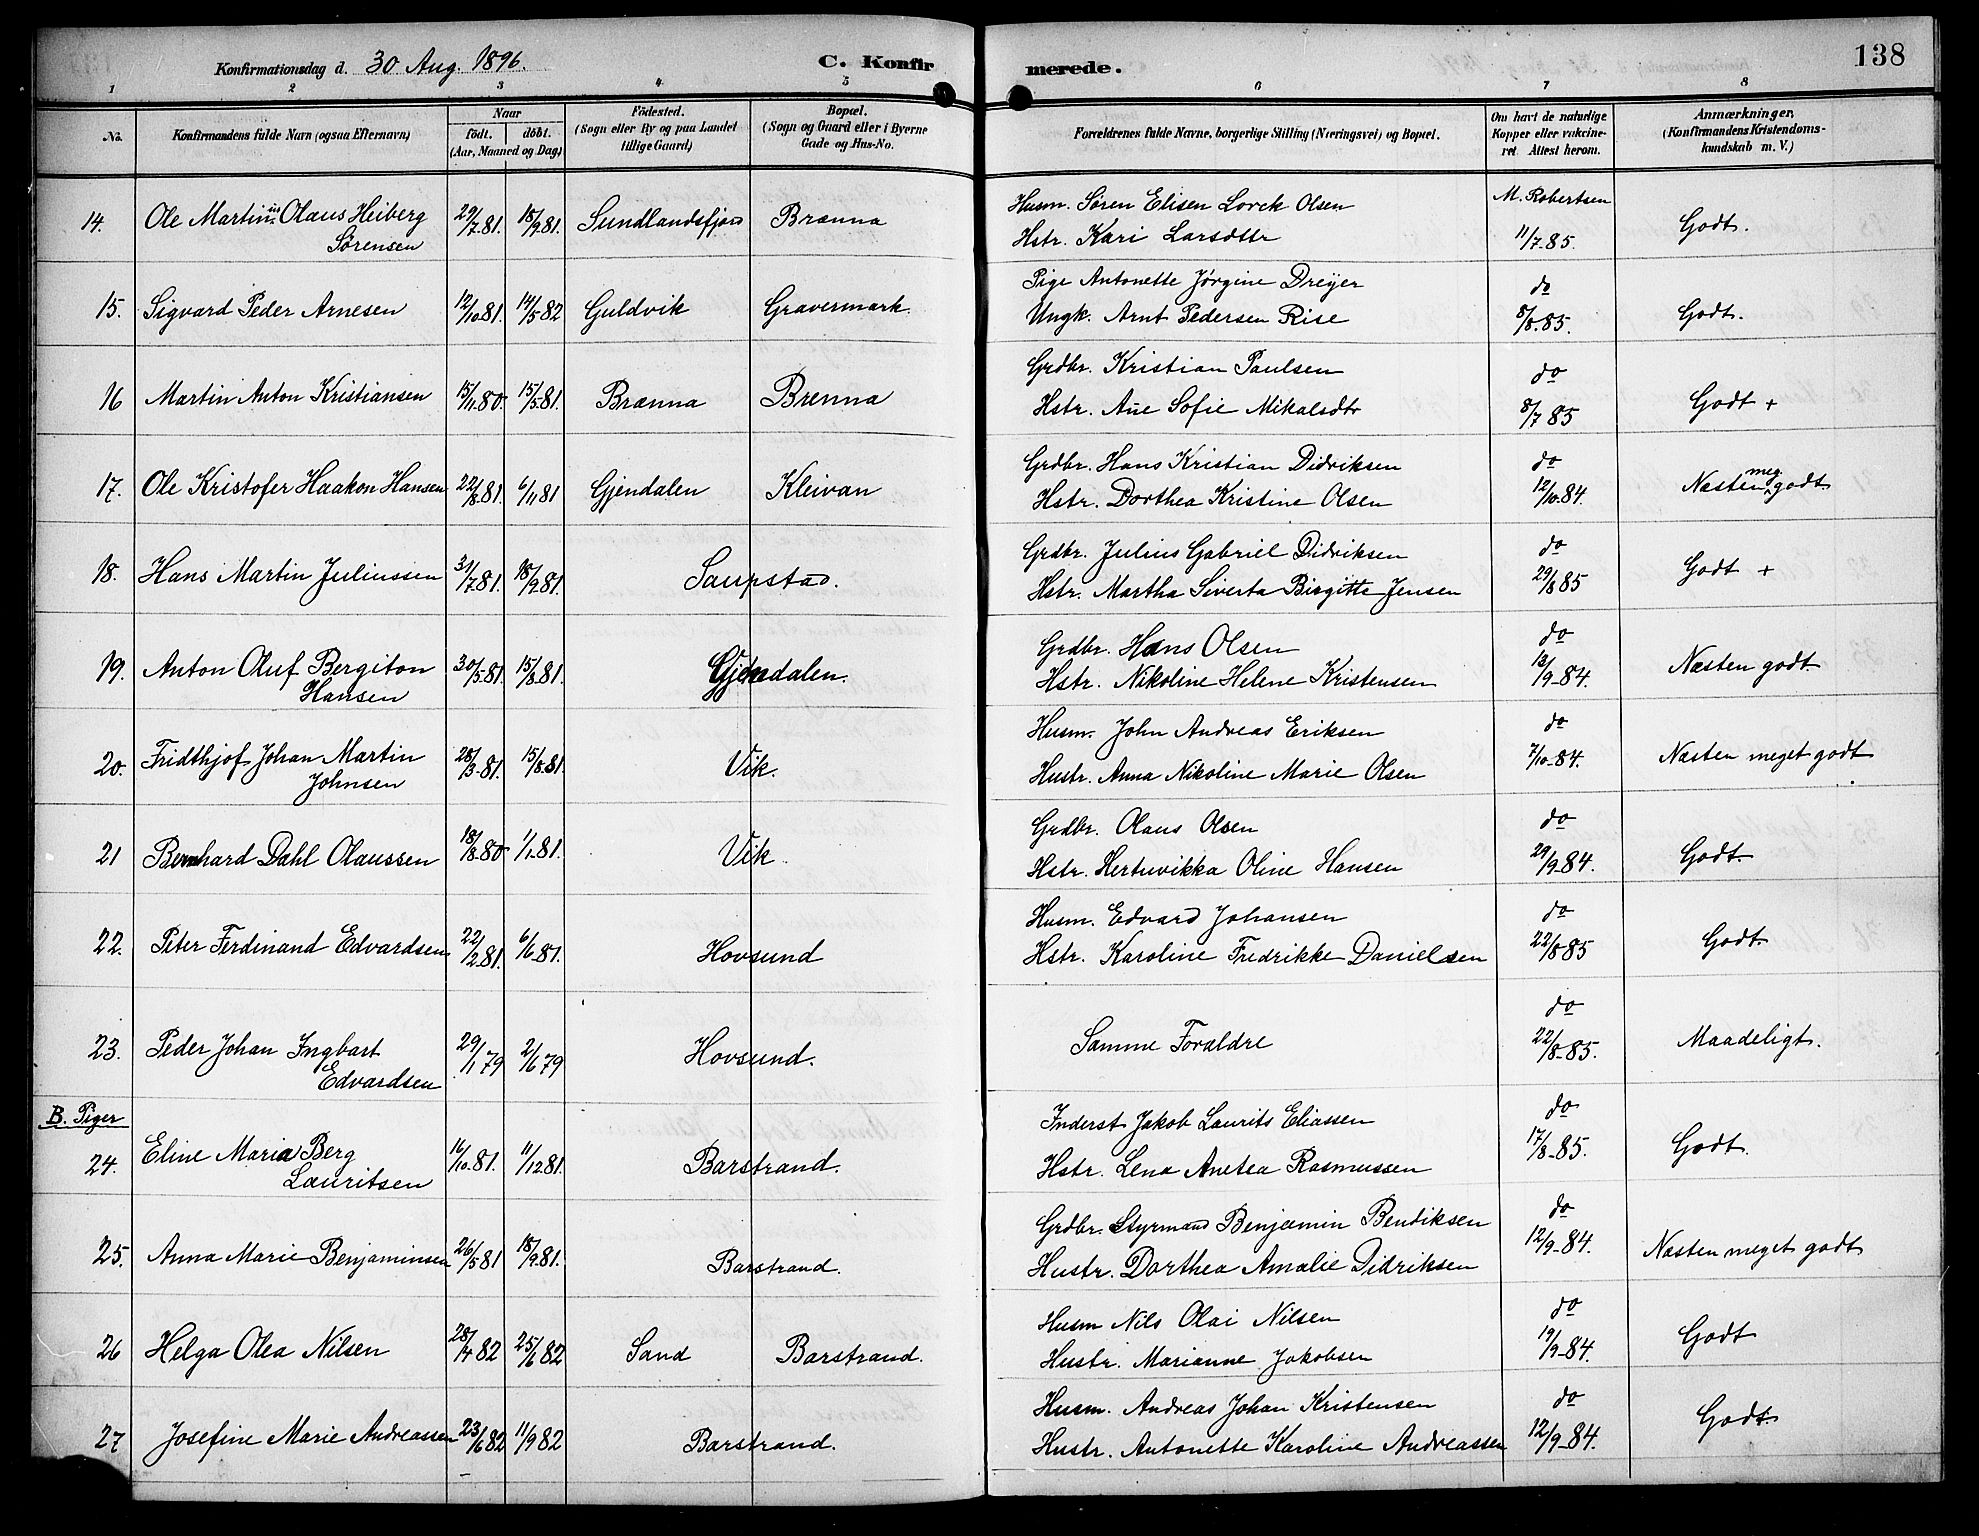 Konfirmationsdag d. 30 Aug. 1896. C. Konfirmerede. 138
1 2 3 4 5 6 7 8
No. Konfirmandens fulde Navn (ogsaa Efternavn) Naar födt. döbt. (Aar, Maaned og Dag) Födested. (Sogn eller By og paa Landet tillige Gaard) Bopæl. (Sogn og Gaard eller i Byerne Gade og Hus-No. Forældrenes fulde Navne, borgerlige Stilling (Næringsvei) og Bopæl. Om havt de naturlige Kopper eller vakcineret Attest herom. Anmærkninger, (Konfirmandens Kristendomskundskab m. V.)
14. Ole Martinius Olaus Heiberg Sørensen 29/7.81. 18/9.81. Sundlandsfjord Brænna Husm. Sören Elisen Lorck Olsen M. Robertsen
Hstr. Kari Larsdttr 11/7-85. Godt.
15. Sigvard Peder Arnesen 12/10.81. 14/5.82 Guldvik Gravermark. Pige Antonette Jørgine Dreyer do
Ungk. Arnt Pedersen Rise 8/8.85. Godt.
16 Martin Anton Kristiansen 15/11.80. 15/5.81. Brænna Brenna Grdbr. Kristian Paulsen do
Hstr. Ane Sofie Mikalsdtr 8/7 85 Godt +
17. Ole Kristofer Haakon Hansen 22/8.81. 6/11 81 Gjendalen Kleivan Grdbr. Hans Kristian Didriksen do
Hstr. Dorthea Kristine Olsen 12/10.84. Næsten meg. godt
18. Hans Martin Juliussen 31/7.81. 18/9.81. Saupstad. Grdbr. Julius Gabriel Didriksen do
Hstr. Martha Siverta Birgitte Jensen 29/8 85 Godt +
19. Anton Oluf Bergiton Hansen 30/5.81. 15/8.81. Gjendalen. Grdbr. Hans Olsen do
Hstr. Nikoline Helene Kristensen 12/9-84. Næsten godt.
20. Fridthjof Johan Martin Johnsen 28/3.81. 15/8.81. Vik. Husm. John Andreas Eriksen do
Hustr. Anna Nikoline Marie Olsen 7/10-84. Næsten meget godt
21 Bernhard Dahl Olaussen 18/8.80 1/1.81. Vik Grdbr. Olaus Olsen do
Hstr. Hertuvikka Oline Hansen 29/9-84. Godt.
22. Peter Ferdinand Edvardsen 22/2.81. 6/6.81. Hovsund Husm. Edvard Johansen do
Hstr. Karoline Fredrikke Danielsen 22/8-85 Godt.
23. Peder Johan Ingbart Edvardsen 29/1 79 2/6 79 Hovsund. Samme Forældre do 22/8-85. Maadeligt.
B. Piger
24. Eline Maria Berg Lauritsen 16/10.81. 11/12 81. Barstrand. Inderst Jakob Laurits Eliassen do
Hstr. Lena Anetea Rasmussen 17/8-85. Godt.
25. Anna Marie Benjaminsen 26/5 81 18/9.81. Barstrand. Grdbr. Styrmand Benjamin Bendiksen do
Hustr. Dorthea Amalie Didriksen 12/9-84. Næsten meget godt
26 Helga Olea Nilsen 28/4 82 25/6 82 Sand Barstrand. Husm Nils Olai Nilsen do
Hustr. Marianne Jakobsen 19/9-84. Godt
27 Josefine Marie Andreassen 23/6 82 11/9 82 Barstrand. Husm. Andreas Johan Kristensen do
Hustr. Antonette Karoline Andreassen 12/9-84. Godt